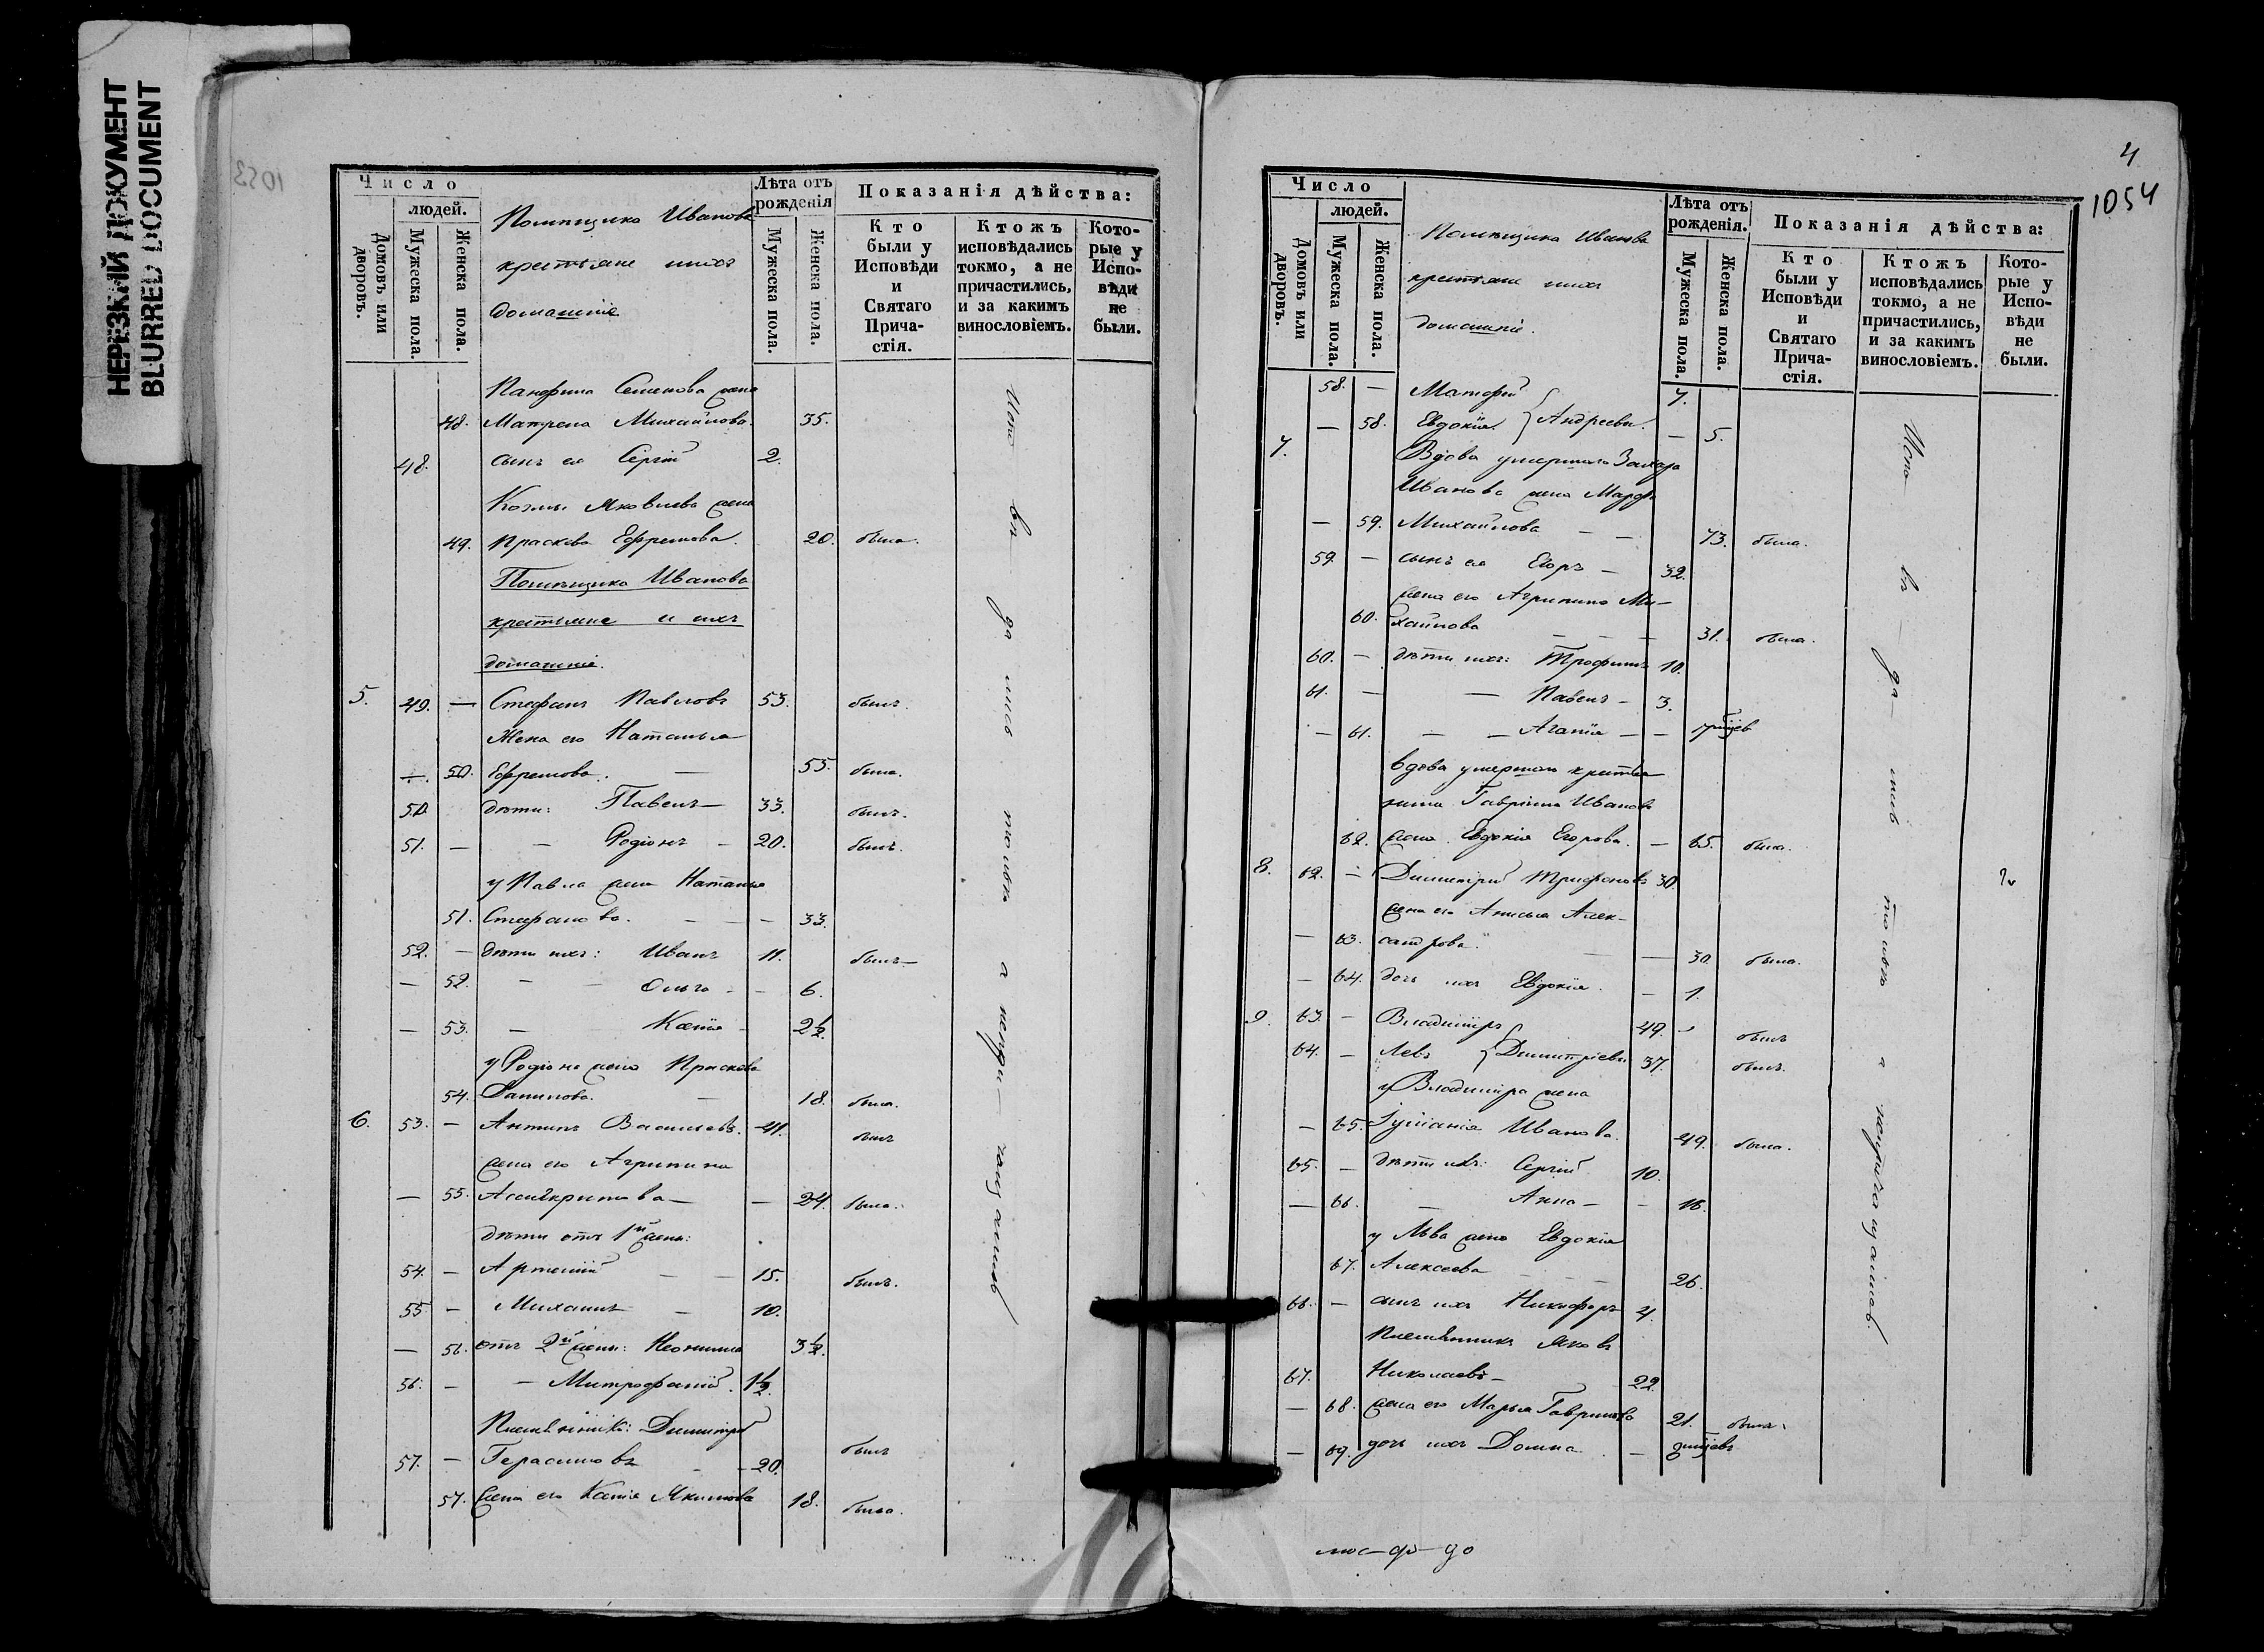 НЕРЕЗКИЙ ДОКУМЕНТ
BLURRED DOCUMENT
Число
людей.
Домовъ или дворовъ.
Мужеска пола.
Женска пола.
Помѣщика Иванова
крестьяне и ихъ
домашніе
Лѣта отъ рожденія
Мужеска пола.
Женска пола.
Показанія дѣйства:
Кто были у Исповѣди и Святаго Прича-стія.
Ктожъ исповѣдались токмо, а не причастились, и за какимъ винословіемъ.
Кото-рые у Испо-вѣди не были.
Панфила Семенова жена
48. Матрена Михайлова. 35.
48. сынъ ея Сергій 2.
Козмы Яковлева жена
49. Праскева Ефремова. 20. была.
Помѣщика Иванова
крестьяне и ихъ
домашніе.
5. 49. — Стефанъ Павловъ 53. былъ.
Жена его Наталья
—. 50. Ефремова. — 55. была.
50. дѣти: Павелъ — 33. былъ.
51. — — Родіонъ — 20. былъ.
у Павла жена Наталья
51. Стефанова. — — — 33.
52. — дѣти ихъ: Иванъ 11. былъ —
— 52. — — Ольга — — 6.
— 53. — Ксенія — 2½.
у Родіона жена Праскева
54. Данилова. — 18. была.
6. 53. — Антипъ Васильевъ. 41. былъ
жена его Агрипина
— 55. Ассигкритова — — 24. была.
дѣти отъ 1й жены:
54. — Артемій — — 15. былъ.
55 — Михаилъ — 10.
— 56. отъ 2й жены: Неонила 3½.
56. — — Митрофаній. 1½.
Племянники: Димитрій
57. — Герасимовъ — — 20. былъ
57. жена его Ксенія Якимова 18. была.
4
1054
Число
людей.
Домовъ или дворовъ.
Мужеска пола.
Женска пола.
Помѣщика Иванова
крестьяне и ихъ
домашніе.
Лѣта отъ рожденія.
Мужеска пола.
Женска пола.
Показанія дѣйства:
Кто были у Исповѣди и Святаго Прича-стія.
Ктожъ исповѣдались токмо, а не причастились, и за какимъ винословіемъ.
Кото-рые у Испо-вѣди не были.
58. — Матфей 7.
— 58. Евдокія } Андреевы. — 5.
7. Вдова умершаго Захара
Иванова жена Марфа
— 59. Михайлова — — 73. была.
59. — сынъ ея Егоръ — 32.
жена его Агрипина Ми—
60. хайлова — — — 31. была.
60. — дѣти ихъ: Трофимъ 10.
61. — — Павелъ — 3.
— 61. — — Агапія — —
вдова умершаго крестья
нина Гавріила Иванова
62. жена Евдокія Егорова. — 65. была.
8. 62. — Димитрій Трифоновъ 30.
жена его Анисья Алек—
— 63. сандрова. — — 30. была.
— 64. дочь ихъ Евдокія. — 1.
9. 63. — Владиміръ 49. — былъ
64. — Левъ } Димитріевы 37. былъ.
у Владиміра жена
— 65. Іуліанія Иванова. 49. была.
65. — дѣти ихъ: Сергій 10.
— 66. — Анна — — 16.
у Льва жена Евдокія
67. Алексеева — — — 26.
66. — сынъ ихъ Никифоръ 4.
Племянникъ Яковъ
67. Николаевъ — 22.
— 68. жена его Марья Гаврилова 21. была.
— 69. дочь ихъ Домна —